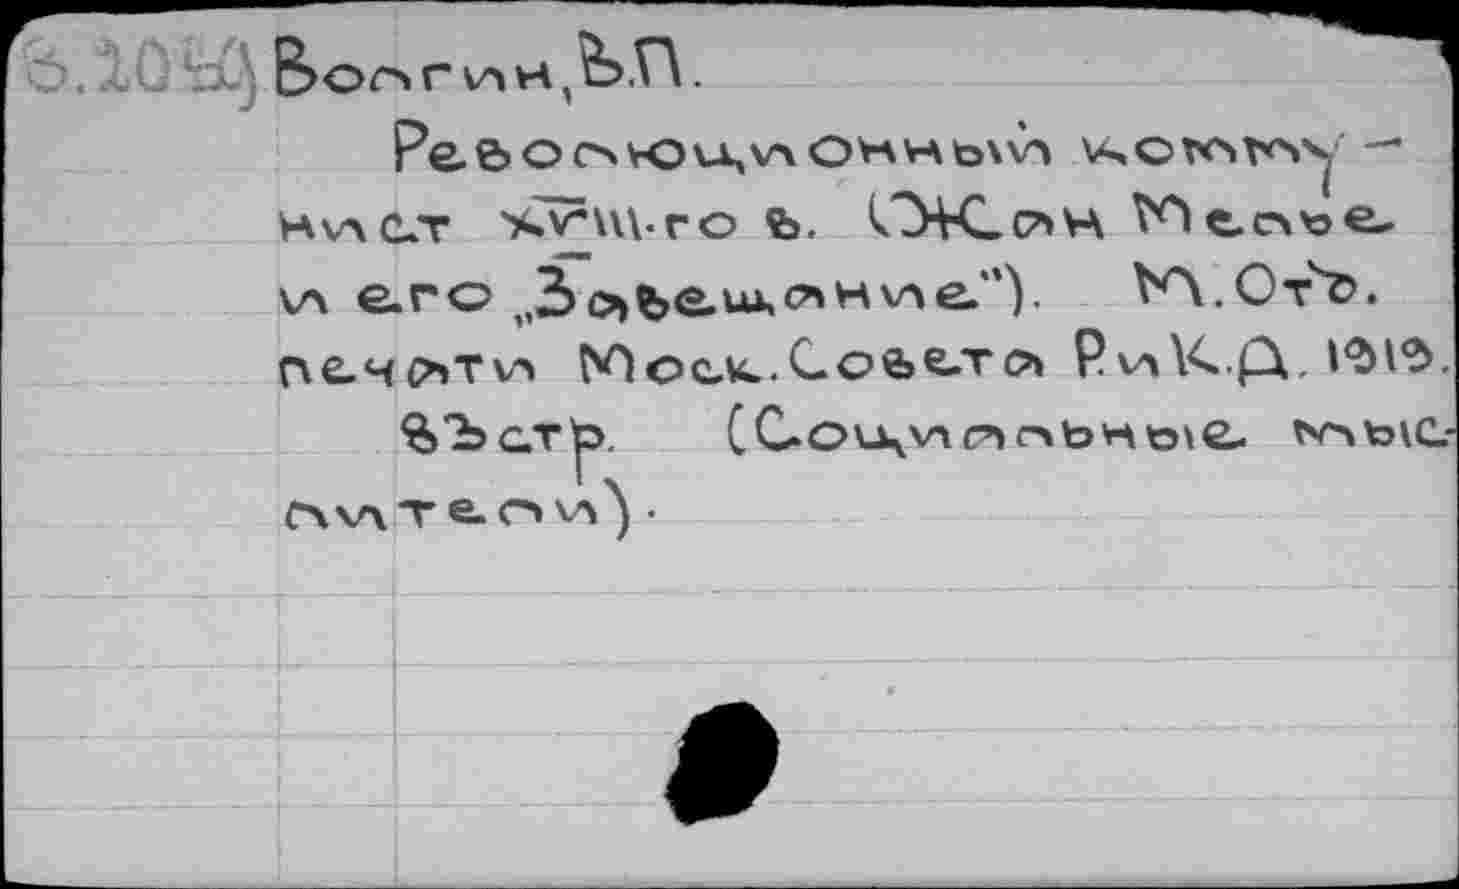 Волгин,В.П.
Революционный комму-
нист XVIII-го в. (Жан Мелье
и его „Завещание"). М. Отд.
печати Моск. Совета Р.иК.Д. 1919.
стр. (Социальные мыс-
лители).